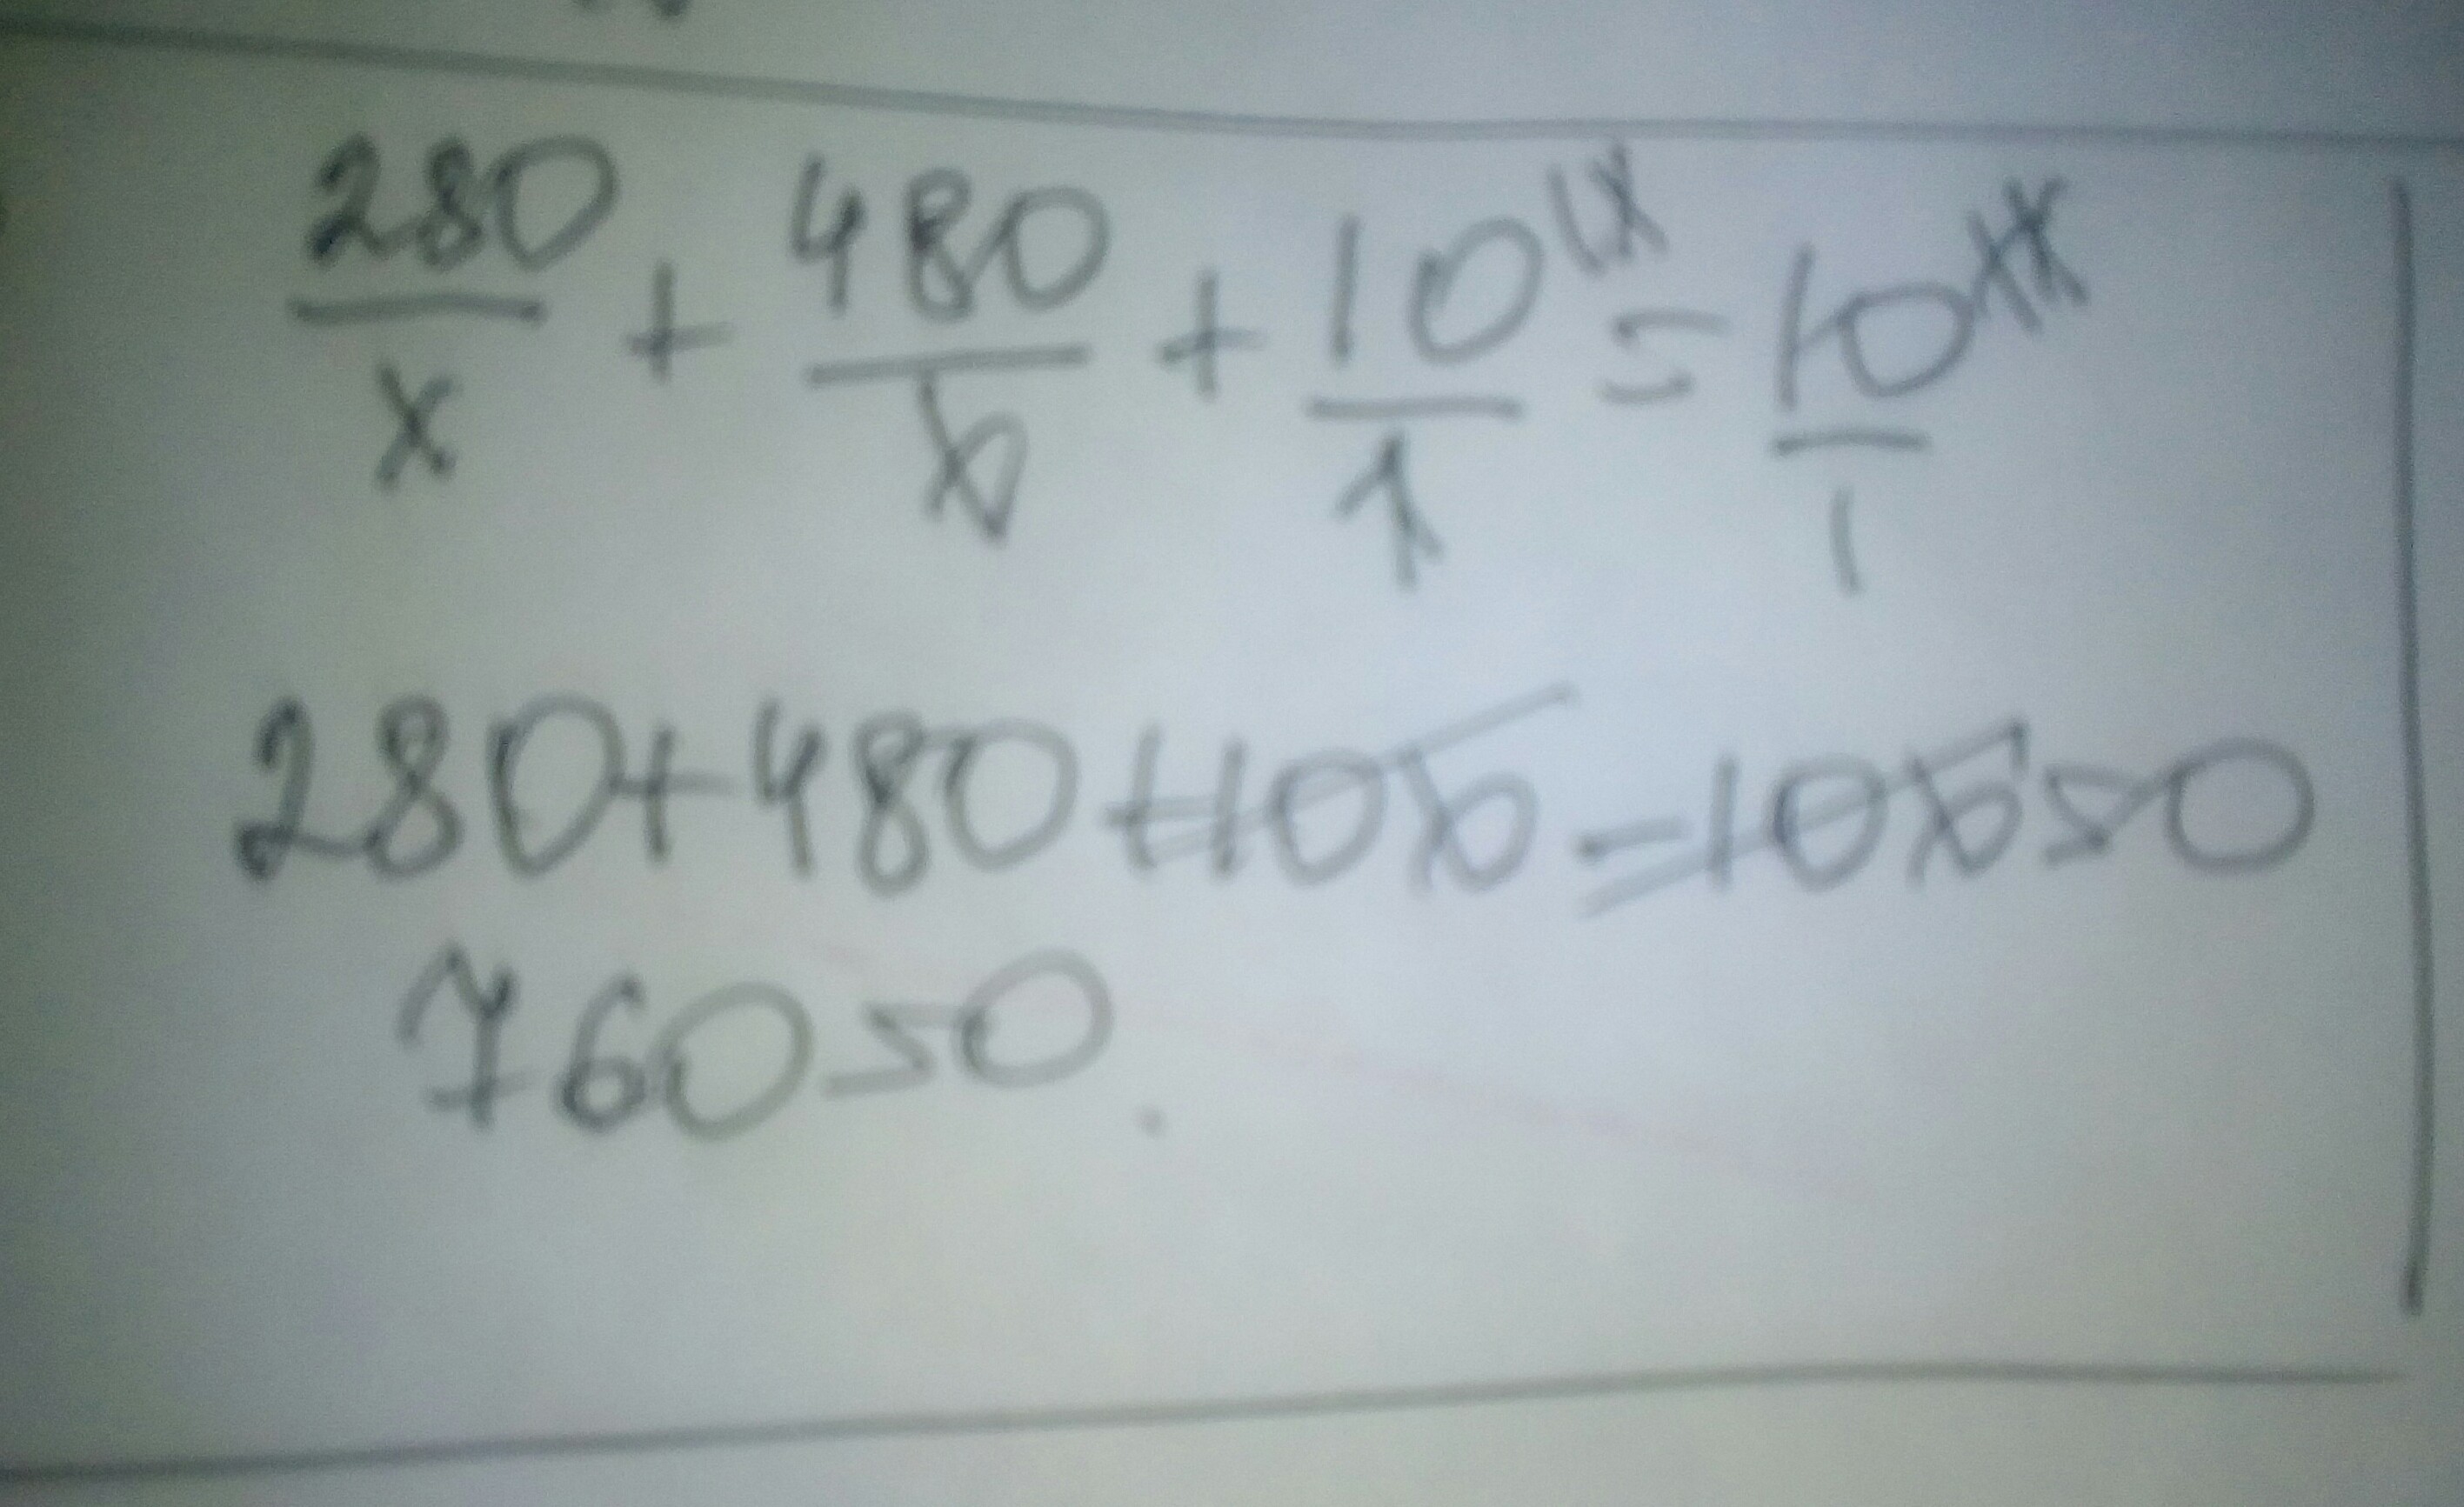 280/x + 480/x + 10/1 |x = 10/1 |x
280+480+10x-10x=0
760=0.